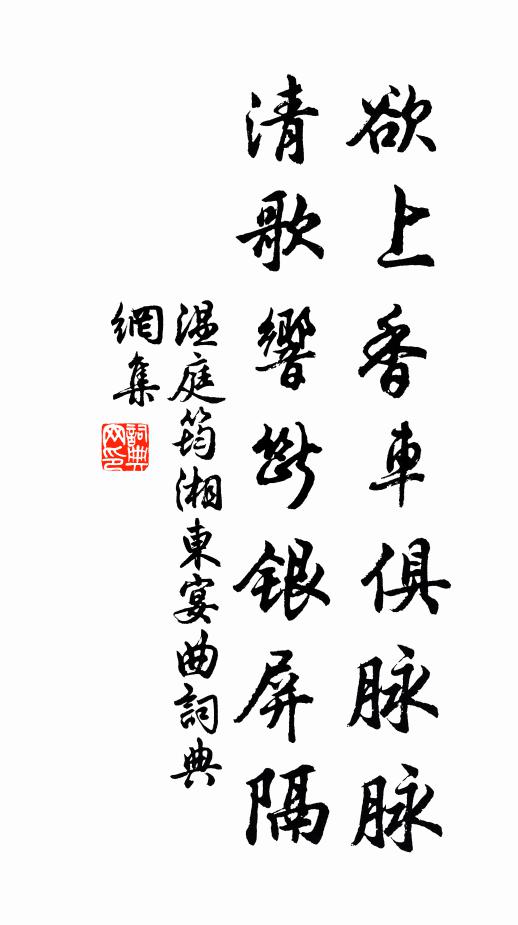 欲上香車俱脉脉
清歌響斷銀屏隔
温庭筠湘東宴曲詞典
網集
詞典
网印